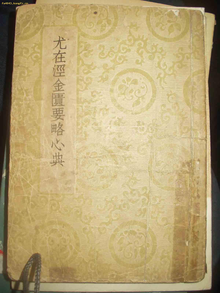 尤在涇金匱要略心典